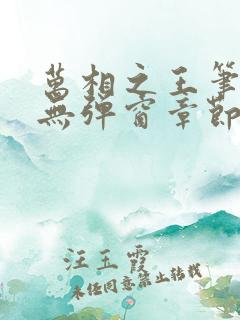 萬相之王筆
無彈窗章節
汪玉霞
未经同意禁止转载